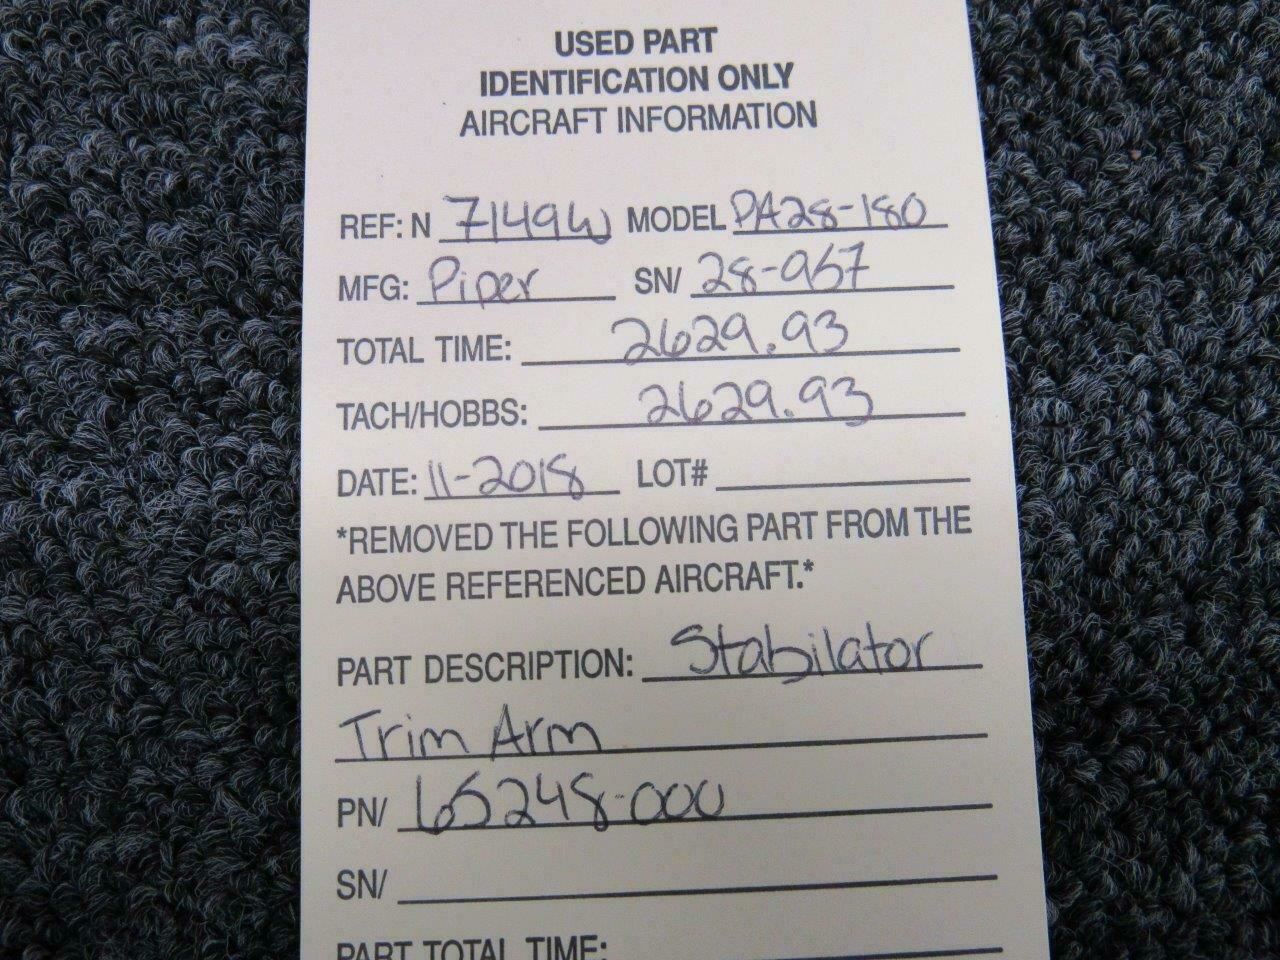 USED PART
IDENTIFICATION ONLY
AIRCRAFT INFORMATION
REF: N 7149W MODEL PA28-180
MFG: Piper SN/ 28-957
TOTAL TIME: 2629.93
TACH/HOBBS: 2629.93
DATE: 11-2018 LOT#
*REMOVED THE FOLLOWING PART FROM THE
ABOVE REFERENCED AIRCRAFT.*
PART DESCRIPTION: Stabilator
Trim Arm
PN/ 65248-000
SN/
PART TOTAL TIME: